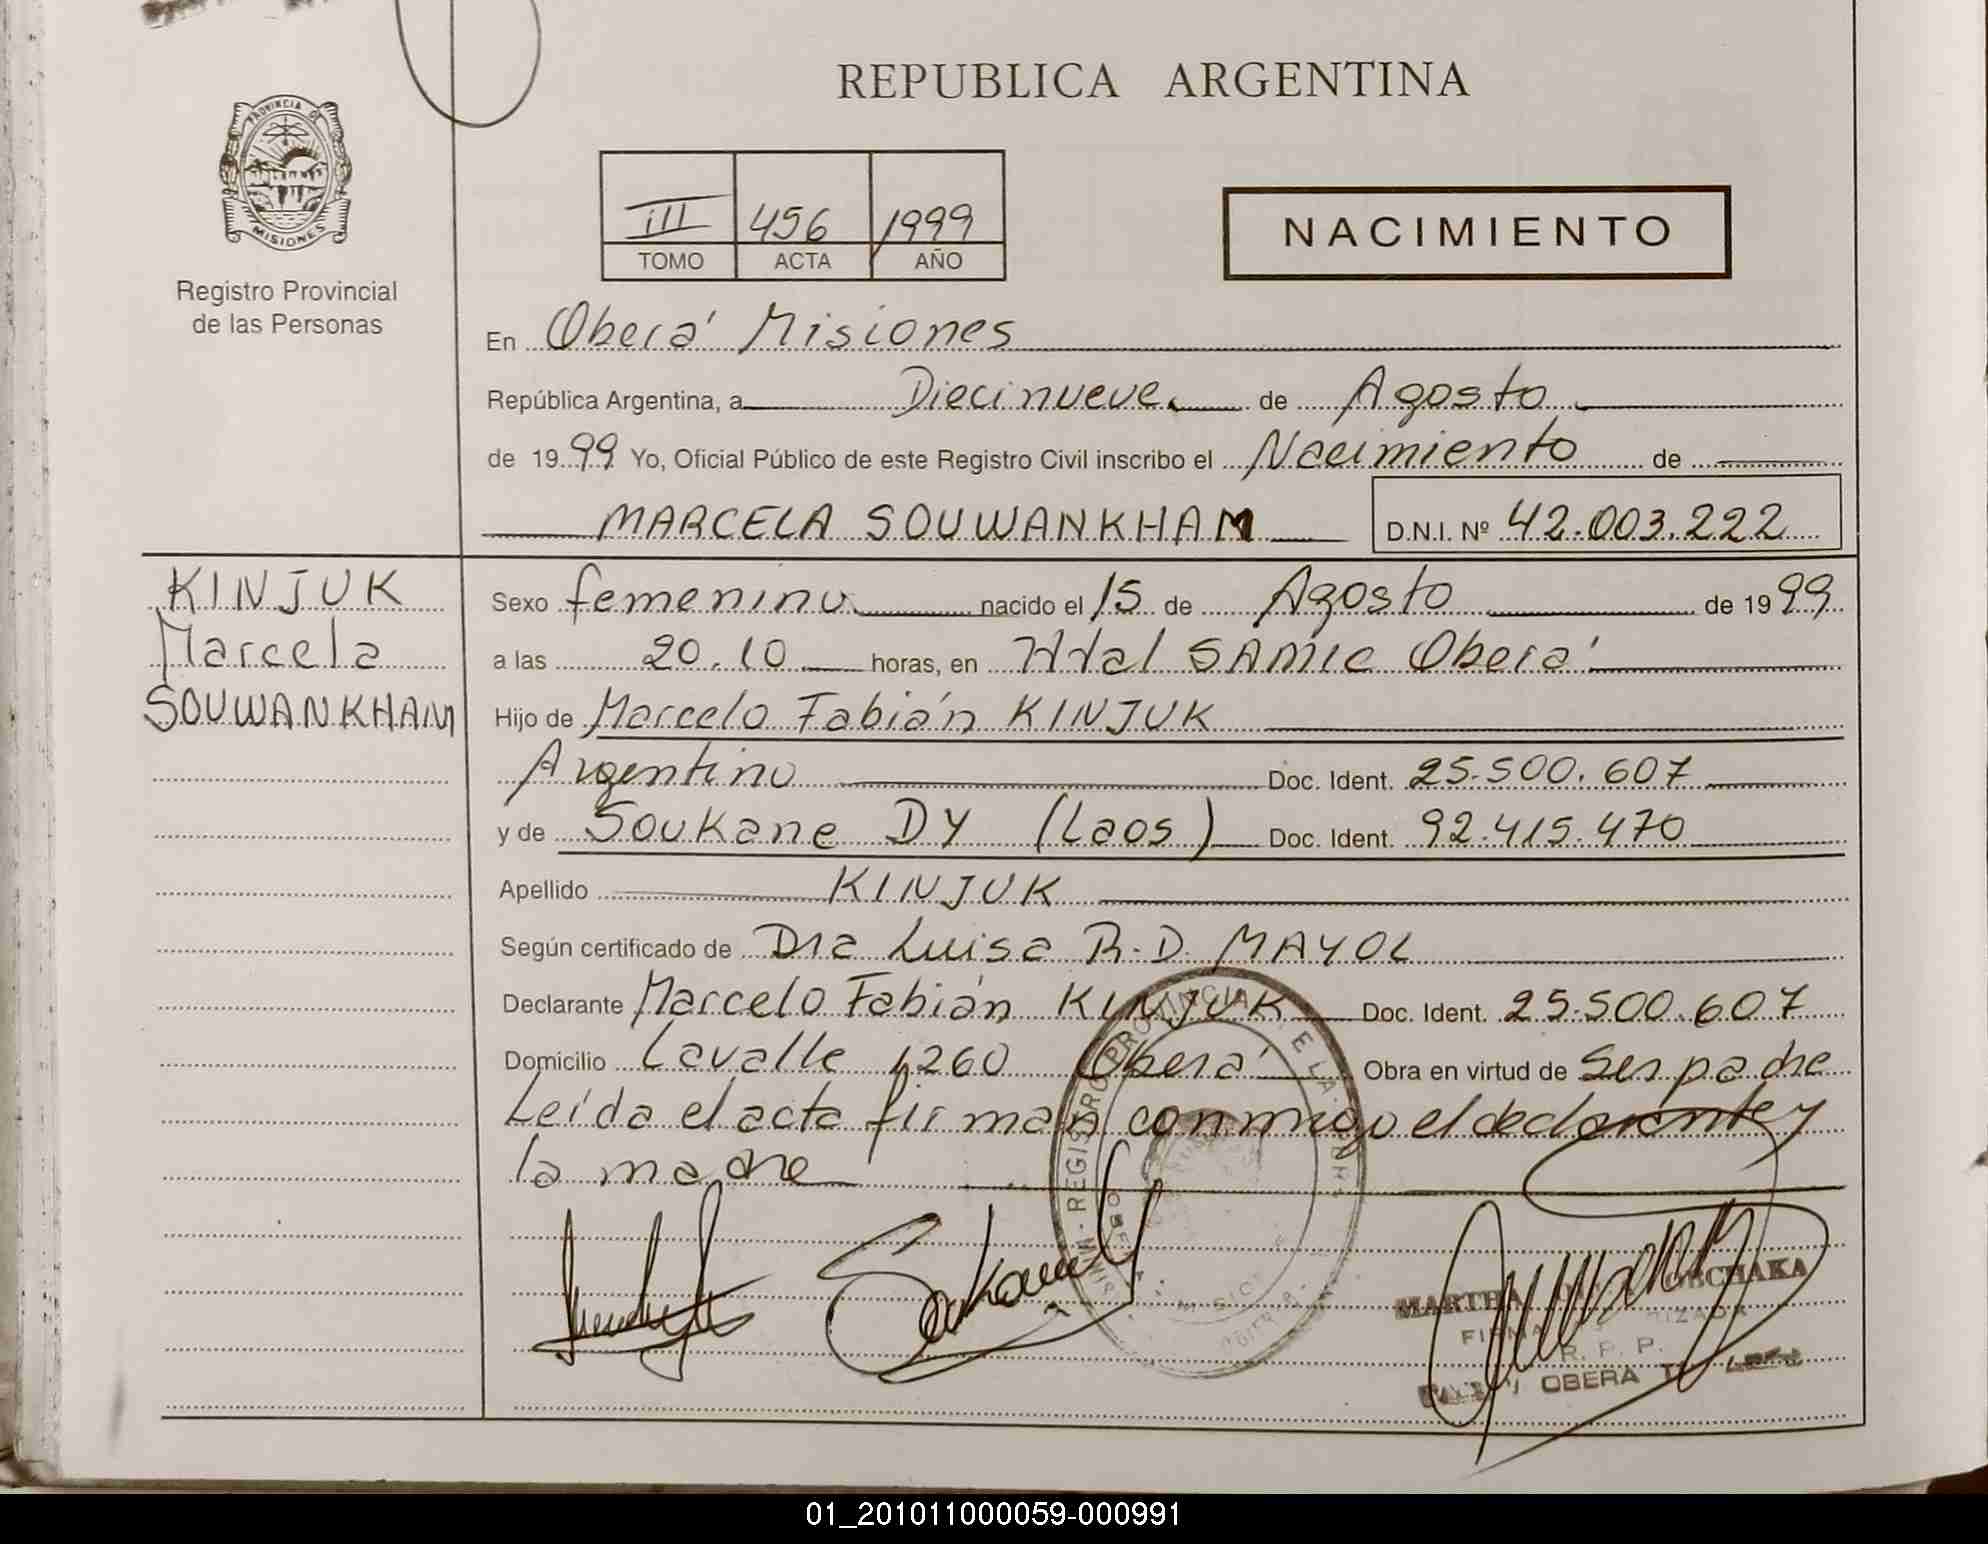 REPUBLICA ARGENTINA
PROVINCIA DE
MISIONES
Registro Provincial
de las Personas
III 456 1999
TOMO ACTA AÑO
NACIMIENTO
En Oberá Misiones
República Argentina, a Diecinueve de Agosto
de 1999 Yo, Oficial Público de este Registro Civil inscribo el Nacimiento de
MARCELA SOUWANKHAM D.N.I. Nº 42.003.222
KINJUK
Marcela
SOUWANKHAM
Sexo femenino nacido el 15 de Agosto de 1999
a las 20.10 horas, en Htal SAMIC Oberá
Hijo de Marcelo Fabián KINJUK
Argentino Doc. Ident. 25.500.607
y de Soukane DY (Laos) Doc. Ident. 92.415.470
Apellido KINJUK
Según certificado de Dra Luisa R.D. MAYOL
Declarante Marcelo Fabián KINJUK Doc. Ident. 25.500.607
Domicilio Lavalle 1260 Oberá Obra en virtud de Ser padre
Leída el acta firman conmigo el declarante y
la madre
REGISTRO PROVINCIA
MARTHA
R. P. P.
OBERA
01_201011000059-000991